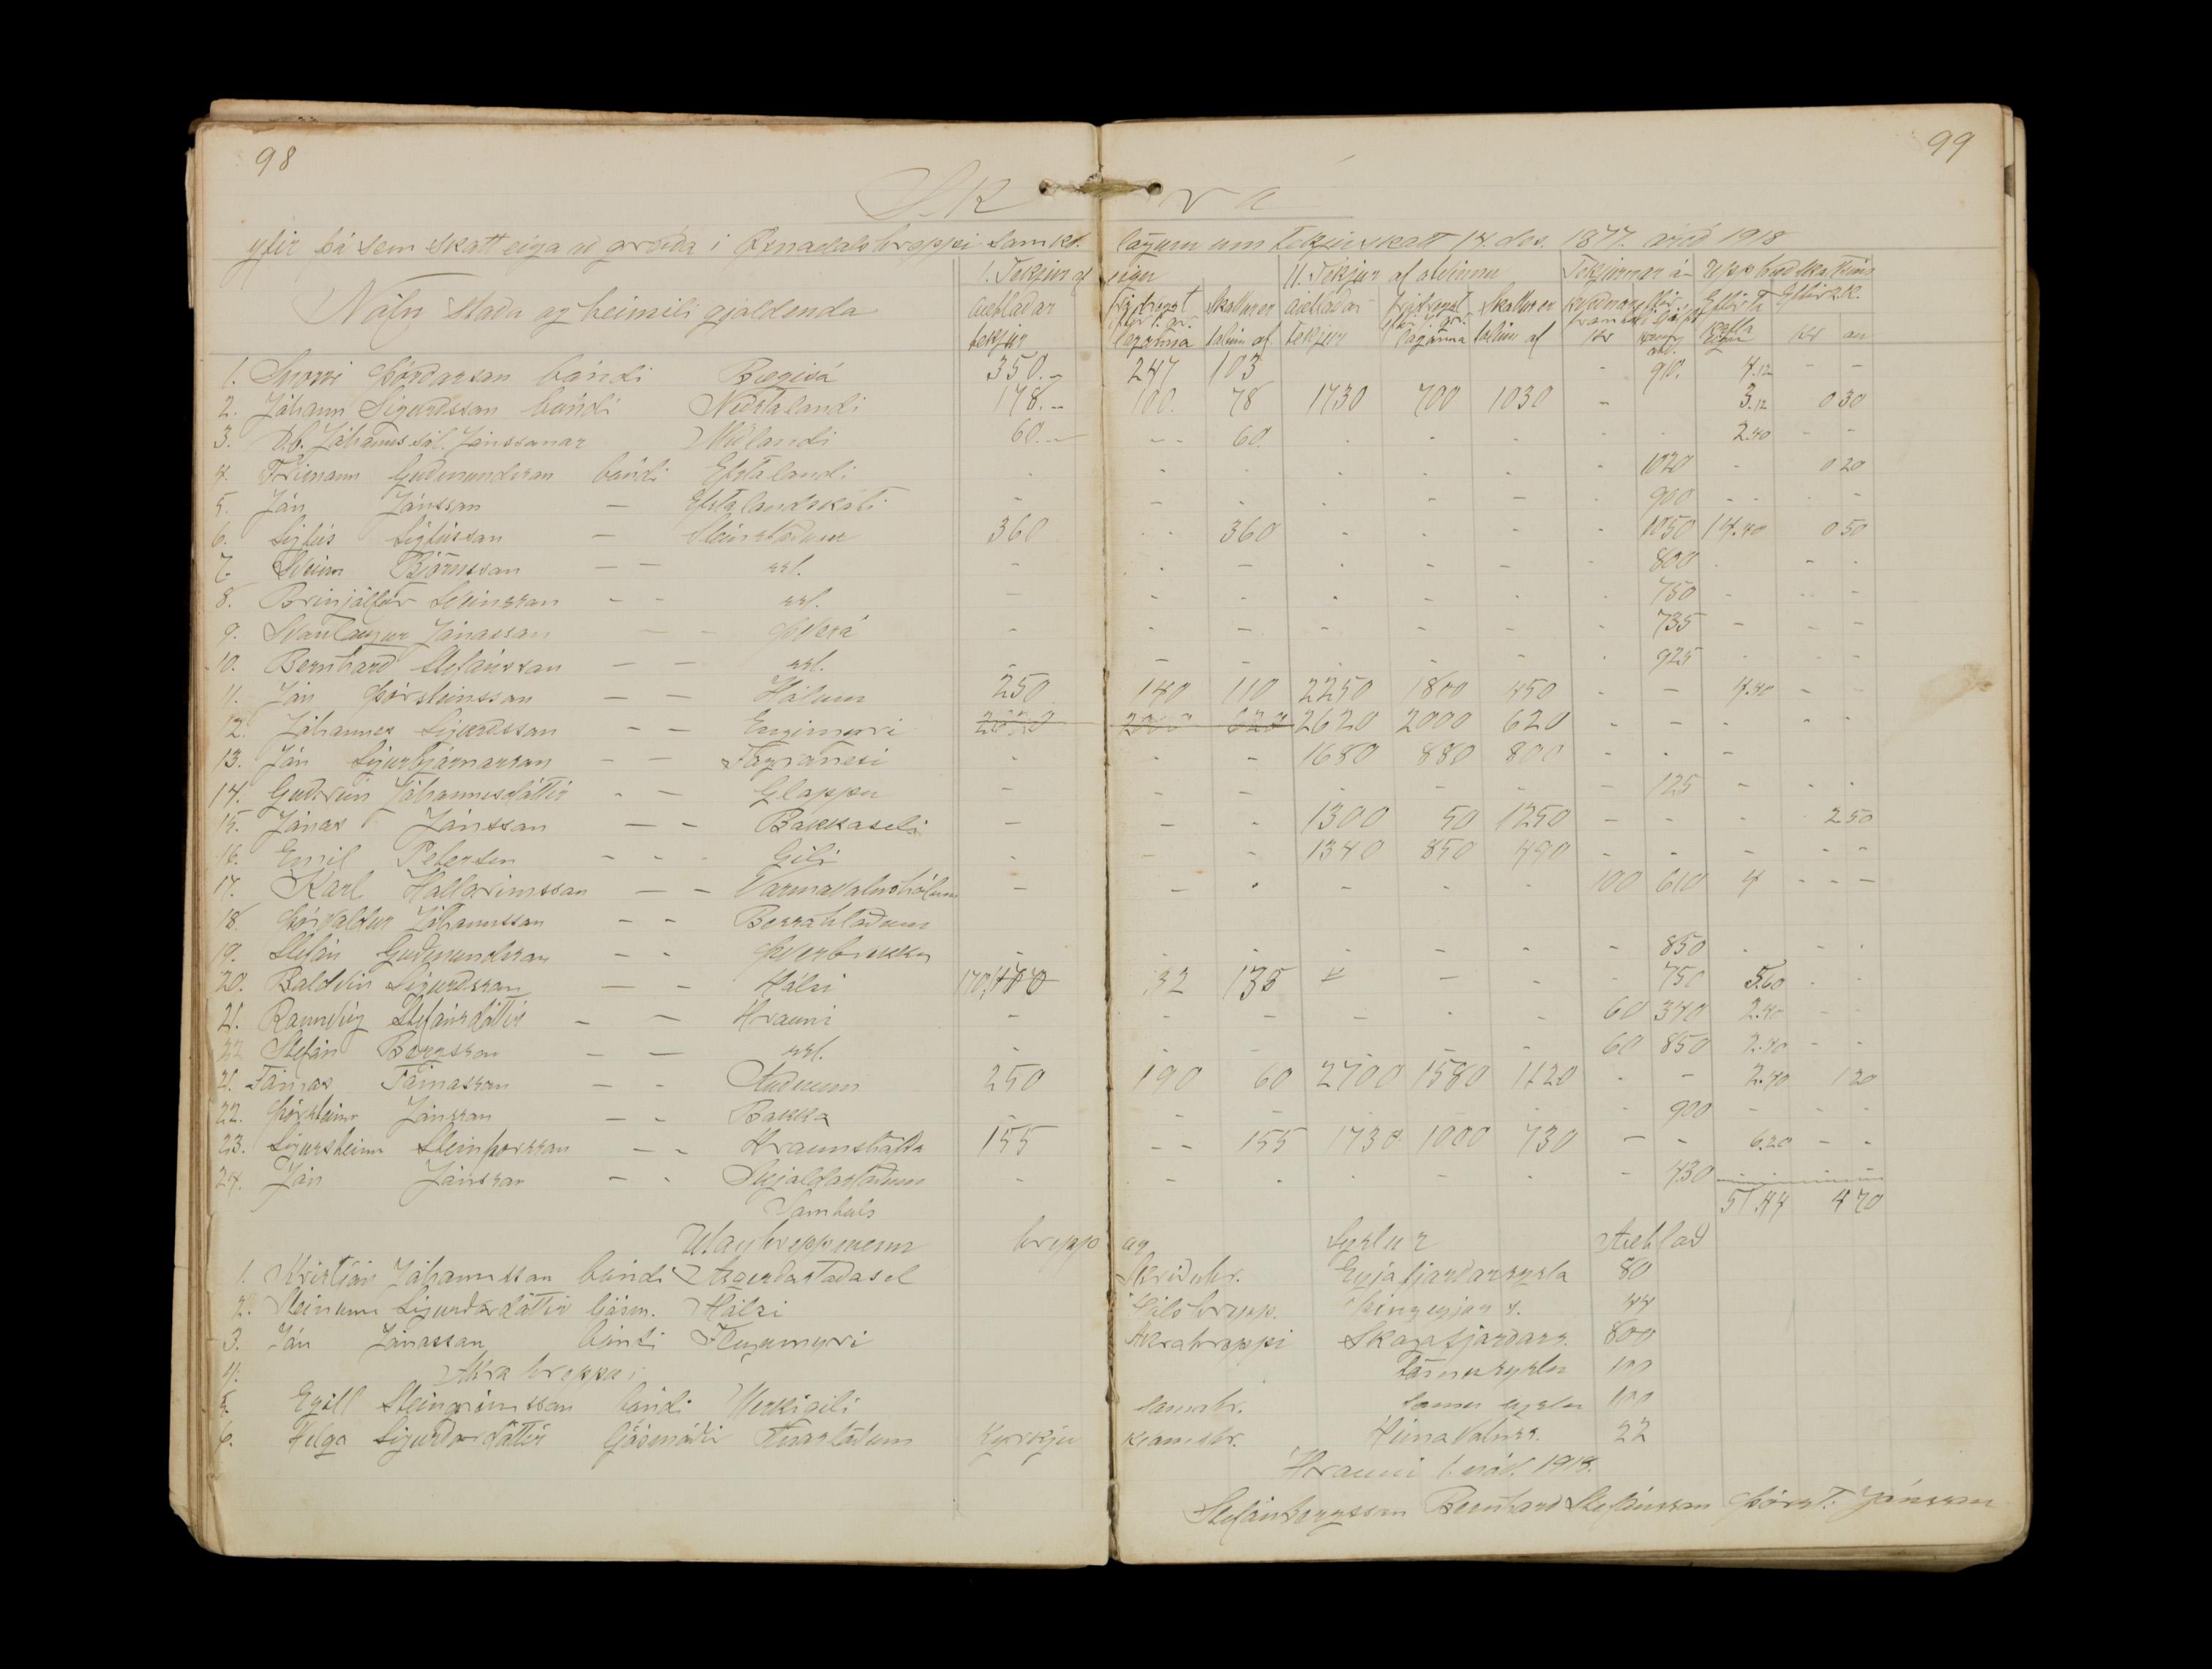 98
99
Skrá
yfir þá sem skatt eiga að greiða i Öxnadalshreppi samkv. lögum um tekjuskatt 14. des. 1877. árið 1918
I. Tekjur af eign II. Tekjur af atvinnu Tekjurnar án Upphæð skattsins
Nöfn staða og heimili gjaldenda
áætlaðar tekjur frádregst laganna skatturer tekin af áætlaðar tekjur frádregst laganna skatturer tekin af kr Eftir kr au
1. Snorri Þórðarson bóndi Bægisá 350.- 247 103 - 910. 4.12 - -
2. Jóhann Sigurðsson bóndi Neðstalandi 178.- 100. 78 1730 700 1030 - 3.12 0 30
3. Db. Jóhanns sál. Jónssonar Miðlandi 60.- - - 60. - - - - - 2.40 - -
4. Frímann Guðmundsson bóndi Efstalandi - - - - - - - 1020 - 0 20
5. Jón Jónsson - Efstalandskoti - - - - - - - 900 - - - -
6. Sigfús Sigfússon - Steinsstöðum 360 - - 360 - - - - 1050 14.40 0 50
7. Stefán Björnsson - - ssl. - - - - - - - 800 - - -
8. Brinjólfur Sveinsson - - ssl. - - - - - - - 750 - - -
9. Svanlaugur Jónasson - - Þverá - - - - - - - 735 - - -
10. Bernharð Stefánsson - - ssl. - - - - - - - 925 - - -
11. Jón Þorsteinsson - - Hólum 250 140 110 2250 1800 450 - - 4.40 - -
12. Jóhannes Sigurðsson - - Engimyri 2620 2000 620 2620 2000 620 - - - - -
13. Jón Sigurbjörnarson - - Fagranesi - - - 1680 880 800 - - -
14. Guðrún Jóhannesdóttir - - Gloppu - - - - - - - 125 - - -
15. Jónas Jónsson - - Bakkaseli - - - 1300 50 1250 - - - 2 50
16. Emil Petersen - - - Gili - - - 1340 850 490 - - - - -
17. Karl Hallgrímsson - - Varmavatnshólum - - - - - - 100 610 4 - - -
18. Þorvaldur Jóhannsson - - Bessahlöðum
19. Stefán Guðmundsson - - Þverbrekku - - - - - - - 850 - - -
20. Baldvin Sigurðsson - - Hálsi 170 32 135 - - - - 750 5.60 - -
21. Rannveig Stefánsdóttir - - Hrauni - - - - - - 60 340 2.40 - -
22 Stefán Bergsson - - ssl. - - - - - - 60 850 2.40 - -
21. Tómas Tómasson - - Auðnum 250 190 60 2700 1580 1120 - - 2.40 1 20
22. Þorsteinn Jónsson - - Bakka - - - - - - - 900 - - -
23. Sigursteinn Steinþorsson - - Hraunshöfða 155 - - 155 1730 1000 730 - - 6.20 - -
24. Jón Jónsson - - Skjaldastöðum - - - - - - - 430
Samtals 51.44 4 70
Utanhreppsmenn hrepp og Syslur Áætlað
1. Kristján Jóhannsson bóndi Ásgerðarstaðasel Skriðuhr. Eyjafjarðarsysla 80
2. Steinunn Sigurðardóttir ljósm. Hálsi Hálshrepp. Þingeyjar s. 44
3. Jón Jónasson bóndi Flugumyri Akrahreppi Skagafjarðars. 800
4. Akrahreppur Sömu syslu 100
5. Egill Steingrímsson bóndi Merkigili samahr. Sömu syslu 100
6. Helga Sigurðardóttir ljósmóðir Kyrkju Húnavatnss. 22
Hrauni 1. nóv. 1918.
Stefán Bergsson Bernharð Stefánsson Þorst. Jónsson